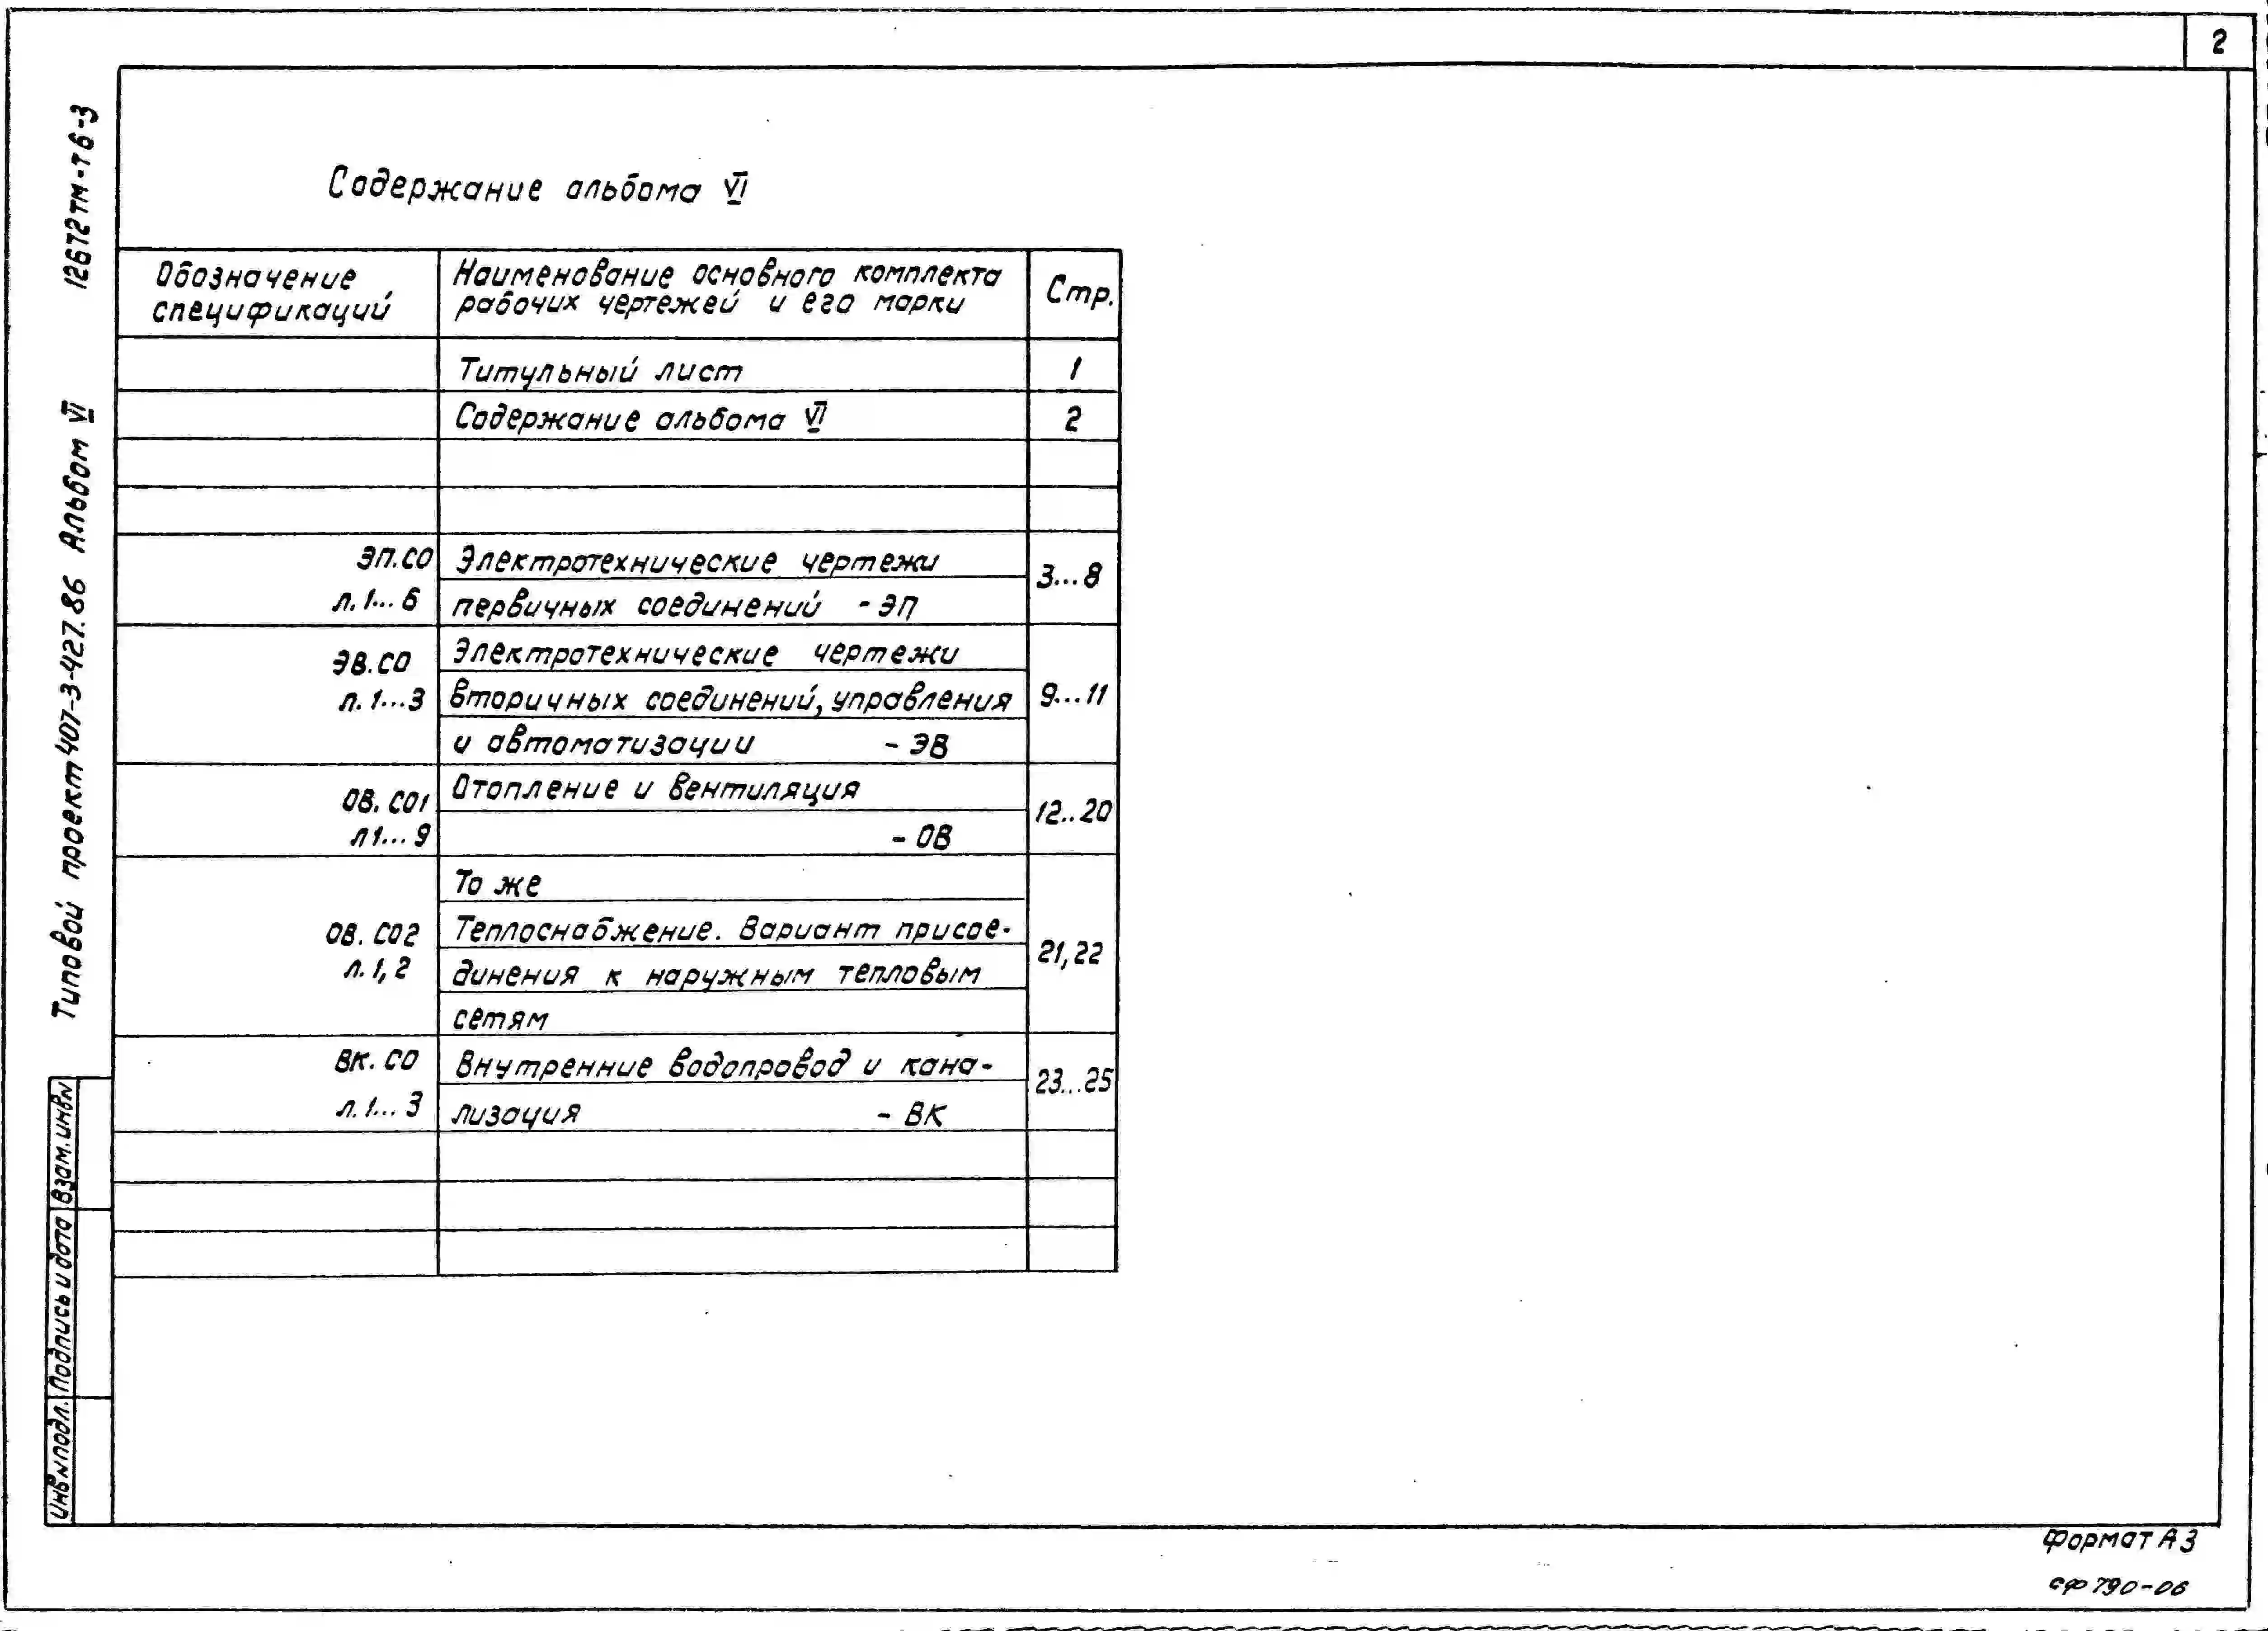 2
12672тм-т6-3
Типовой проект 407-3-427.86 Альбом VI
Содержание альбома VI
Обозначение спецификаций
Наименование основного комплекта рабочих чертежей и его марки
Стр.
Титульный лист 1
Содержание альбома VI 2
ЭП.СО Электротехнические чертежи 3...8
л.1...6 первичных соединений - ЭП
ЭВ.СО Электротехнические чертежи
л.1...3 вторичных соединений, управления 9...11
и автоматизации - ЭВ
ОВ.СО1 Отопление и вентиляция 12..20
л1...9 - ОВ
То же
ОВ.СО2 Теплоснабжение. Вариант присое- 21,22
л.1,2 динения к наружным тепловым
сетям
ВК.СО Внутренние водопровод и кана- 23...25
л.1...3 лизация - ВК
Взам.инв№
Подпись и дата
Инв№подл.
Формат А3
сф 790-06